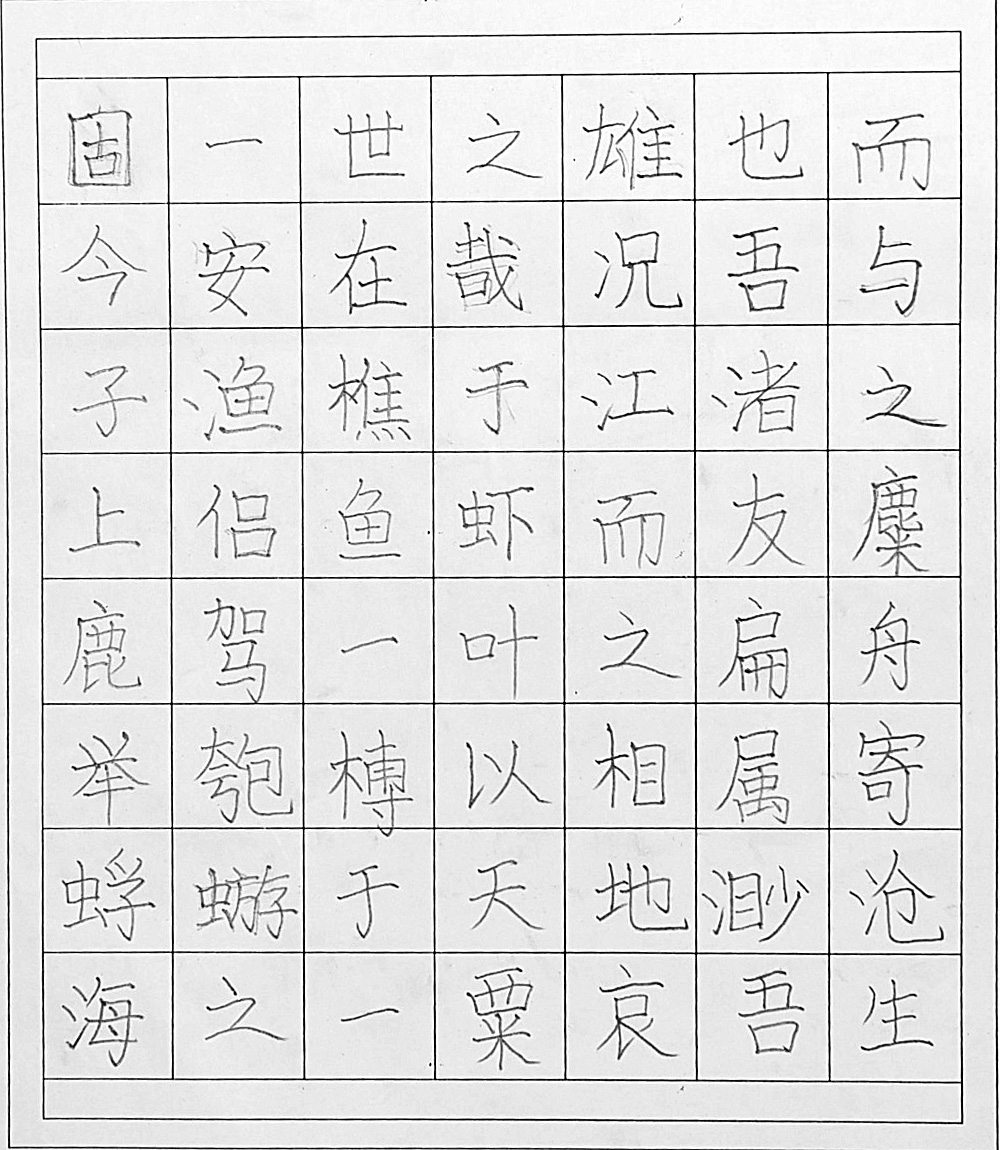 固一世之雄也而
今安在哉况吾与
子渔樵于江渚之
上侣鱼虾而友麋
鹿驾一叶之扁舟
举匏樽以相属寄
蜉蝣于天地渺沧
海之一粟哀吾生